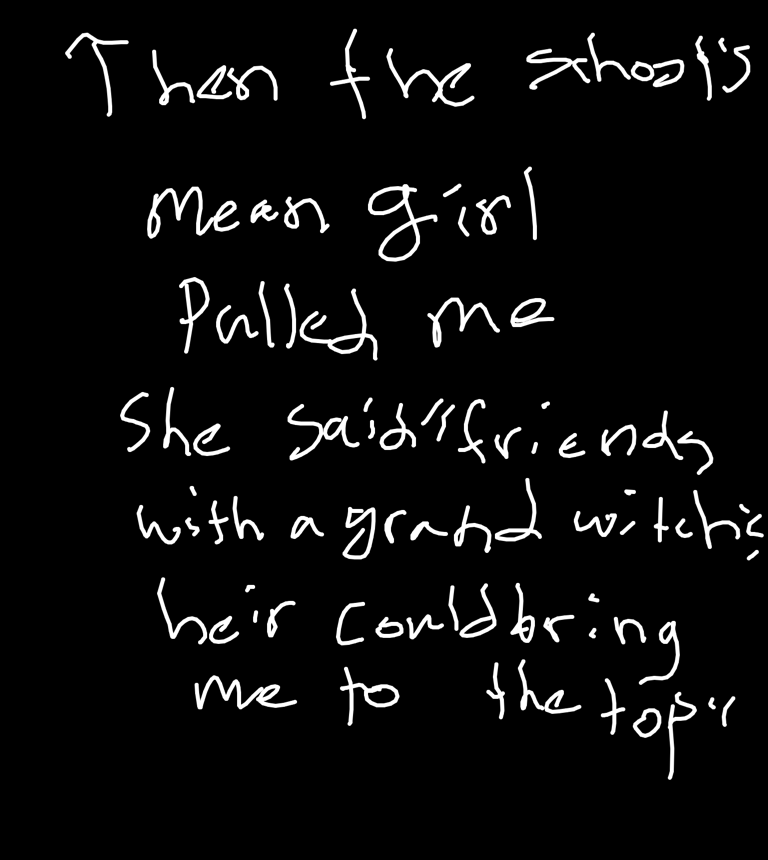 Then the school's
mean girl
Pulled me
She said "friends
with a grand witch's
heir could bring
me to the top"